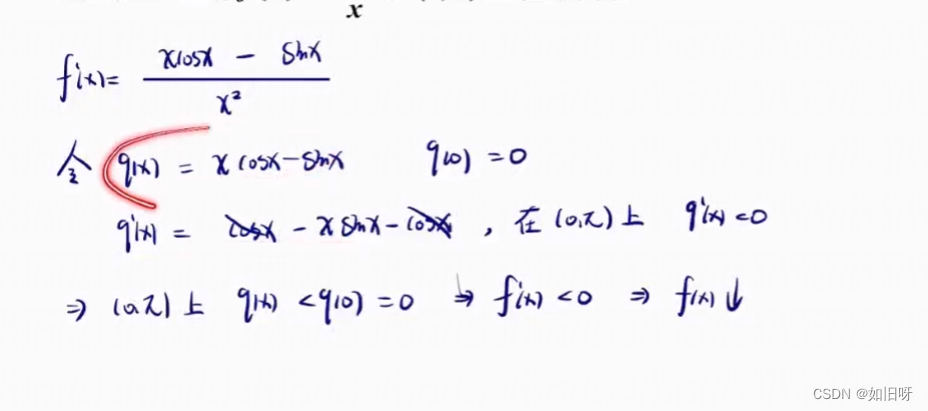 x
f'(x)= (xcosx - sinx)/x²
令 φ(x) = x cosx-sinx φ(0) =0
φ'(x) = cosx - x sinx-cosx , 在 (0,π)上 φ'(x)<0
⇒ (0,π)上 φ(x) <φ(0) =0 ⇒ f'(x) <0 ⇒ f(x)↓
CSDN @如旧呀